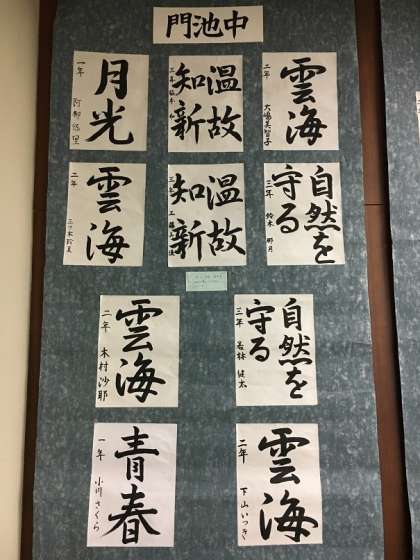 門池中
雲海
二年 大嶋美智子
温故
知新
三年
月光
一年 阿部悠里
自然を
守る
三年 鈴木 那月
温故
知新
三年
雲海
二年
自然を
守る
三年 若林 健太
雲海
二年 木村沙耶
雲海
二年 下山いつき
青春
一年 小川さくら